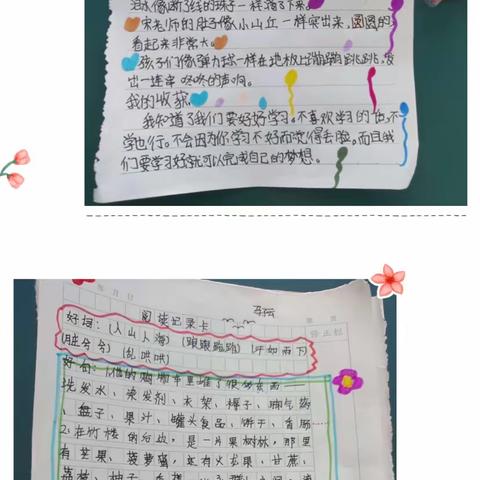 泪水像断了线的珠子一样落下来。
宋老师的肚子像小山丘一样突出来,圆圆的
看起来非常大。
孩子们像弹力球一样在地板上蹦蹦跳跳,发
出一连串咚咚的声响。
我的收获:
我知道了我们要好好学习。不喜欢学习的话,不
学也行。不会因为你学习不好而觉得丢脸。而且我
们要学习好就可以完成自己的梦想。
年 月 日
阅读记录卡
好词:(人山人海)(踉踉跄跄)(汗如雨下)
(脏兮兮)(乱哄哄)
好句:1、他的购物车里堆了很多东西——
洗发水、染发剂、衣架、椰子、脚气药
、盘子、果汁、罐头食品、饼干、香肠……
2、在竹楼的右边,是一片果树林,那里
有芒果、菠萝蜜,还有火龙果、甘蔗、